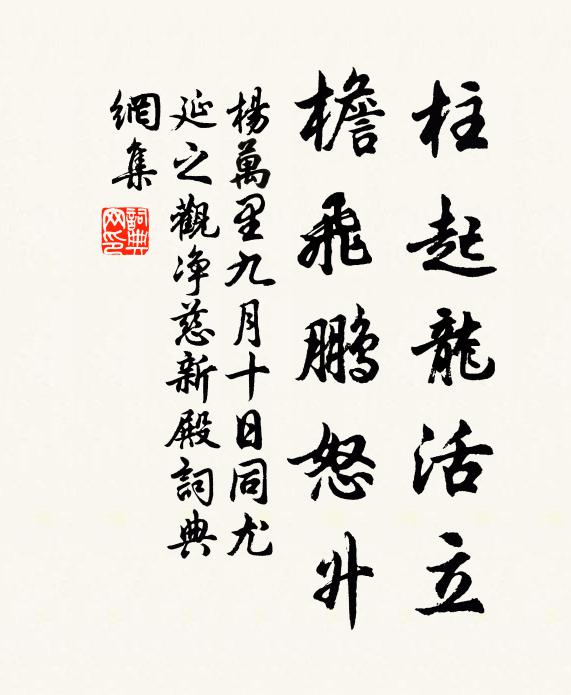 柱起龍活立
檐飛鵬怒升
楊萬里九月十日同尤
延之觀净慈新殿詞典
網集
詞典网印